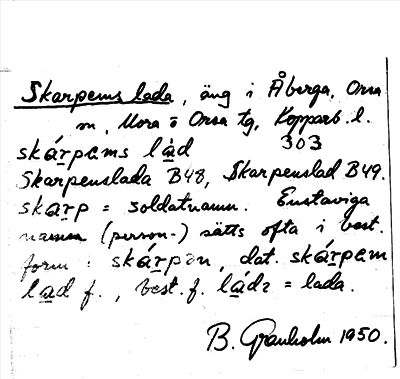 Skarpems lada, äng i Åberga, Orsa
sn, Mora o Orsa tg, Kopparb. l.
303
skárpems låd
Skarpenslada B48, Skarpenslad B49.
skarp = soldatnamn. Enstaviga
namn (person-) sätts ofta i best.
form: skárpən, dat. skárpem
lad f., best. f. ládɪ = lada.
B. Granholm 1950.